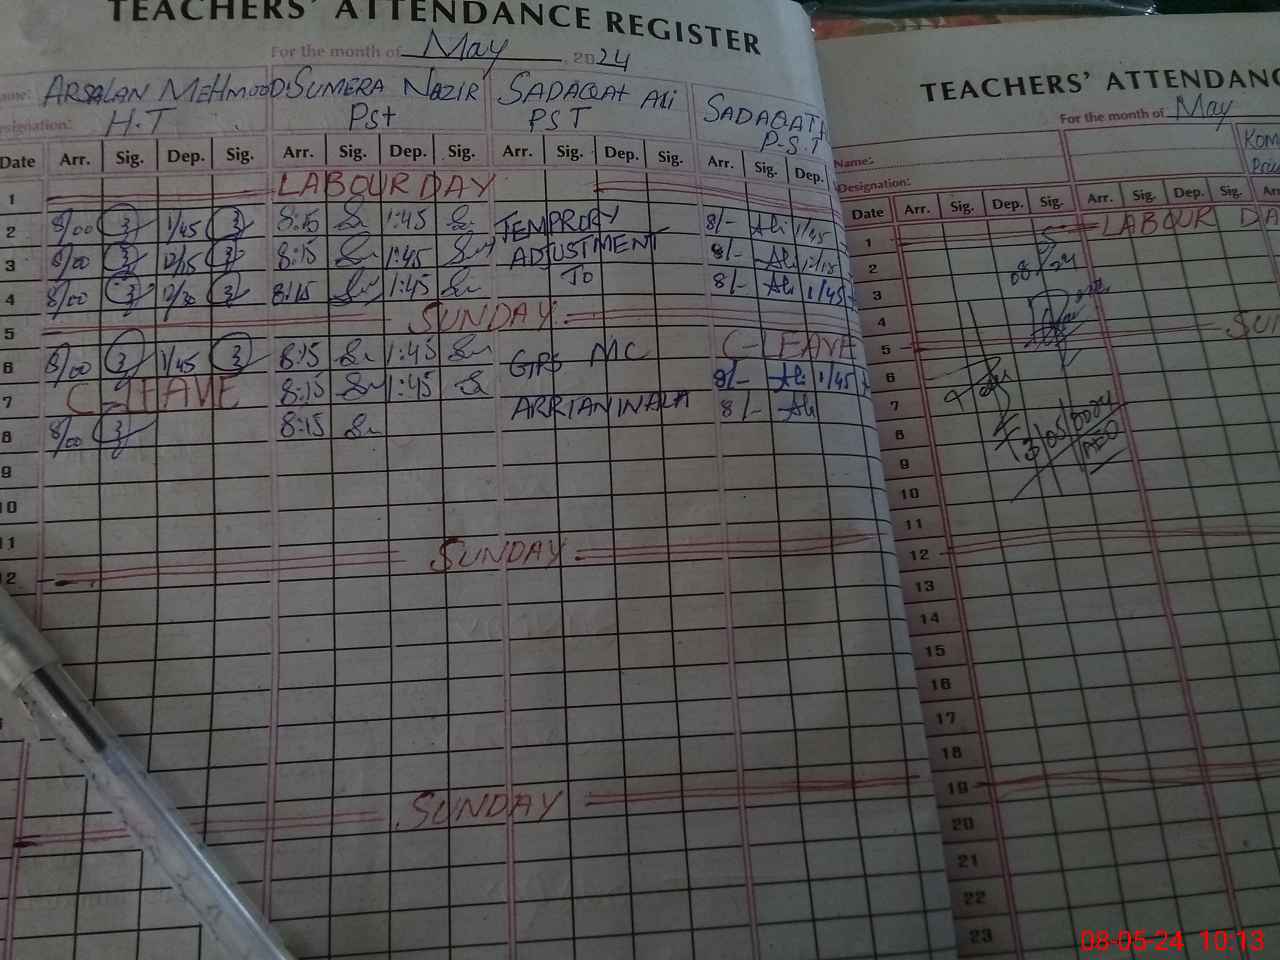 TEACHERS' ATTENDANCE REGISTER
For the month of May 2024
Name: ARSALAN MEHMOOD SUMERA NAZIR SADAQAT Ali SADAQAT
Designation: H.T Pst PST P.S.T
Date Arr. Sig. Dep. Sig. Arr. Sig. Dep. Sig. Arr. Sig. Dep. Sig. Arr. Sig. Dep.
1 LABOUR DAY
2 8/00 1/45 8:15 1:45 TEMPRORY 8/- Ali 1/45
3 8/00 12/15 8:15 1:45 ADJUSTMENT 8/- Ali 12/15
4 8/00 12/30 8:15 1:45 To 8/- Ali 1/45
5 SUNDAY
6 8/00 1/45 8:15 1:45 GPS MC C-LEAVE
7 C-LEAVE 8:15 1:45 8/- Ali 1/45
8 8/00 8:15 ARRIANWALA 8/- Ali
9
10
11
12 SUNDAY
SUNDAY
TEACHERS' ATTENDANC
For the month of May
Name:
Designation:
Date Arr. Sig. Dep. Sig. Arr. Sig. Dep. Sig. Arr.
1 LABOUR DA
2
3
4
5 SUN
6
7
8
9
10
11
12
13
14
15
16
17
18
19
20
21
22
23
08-05-24 10:13